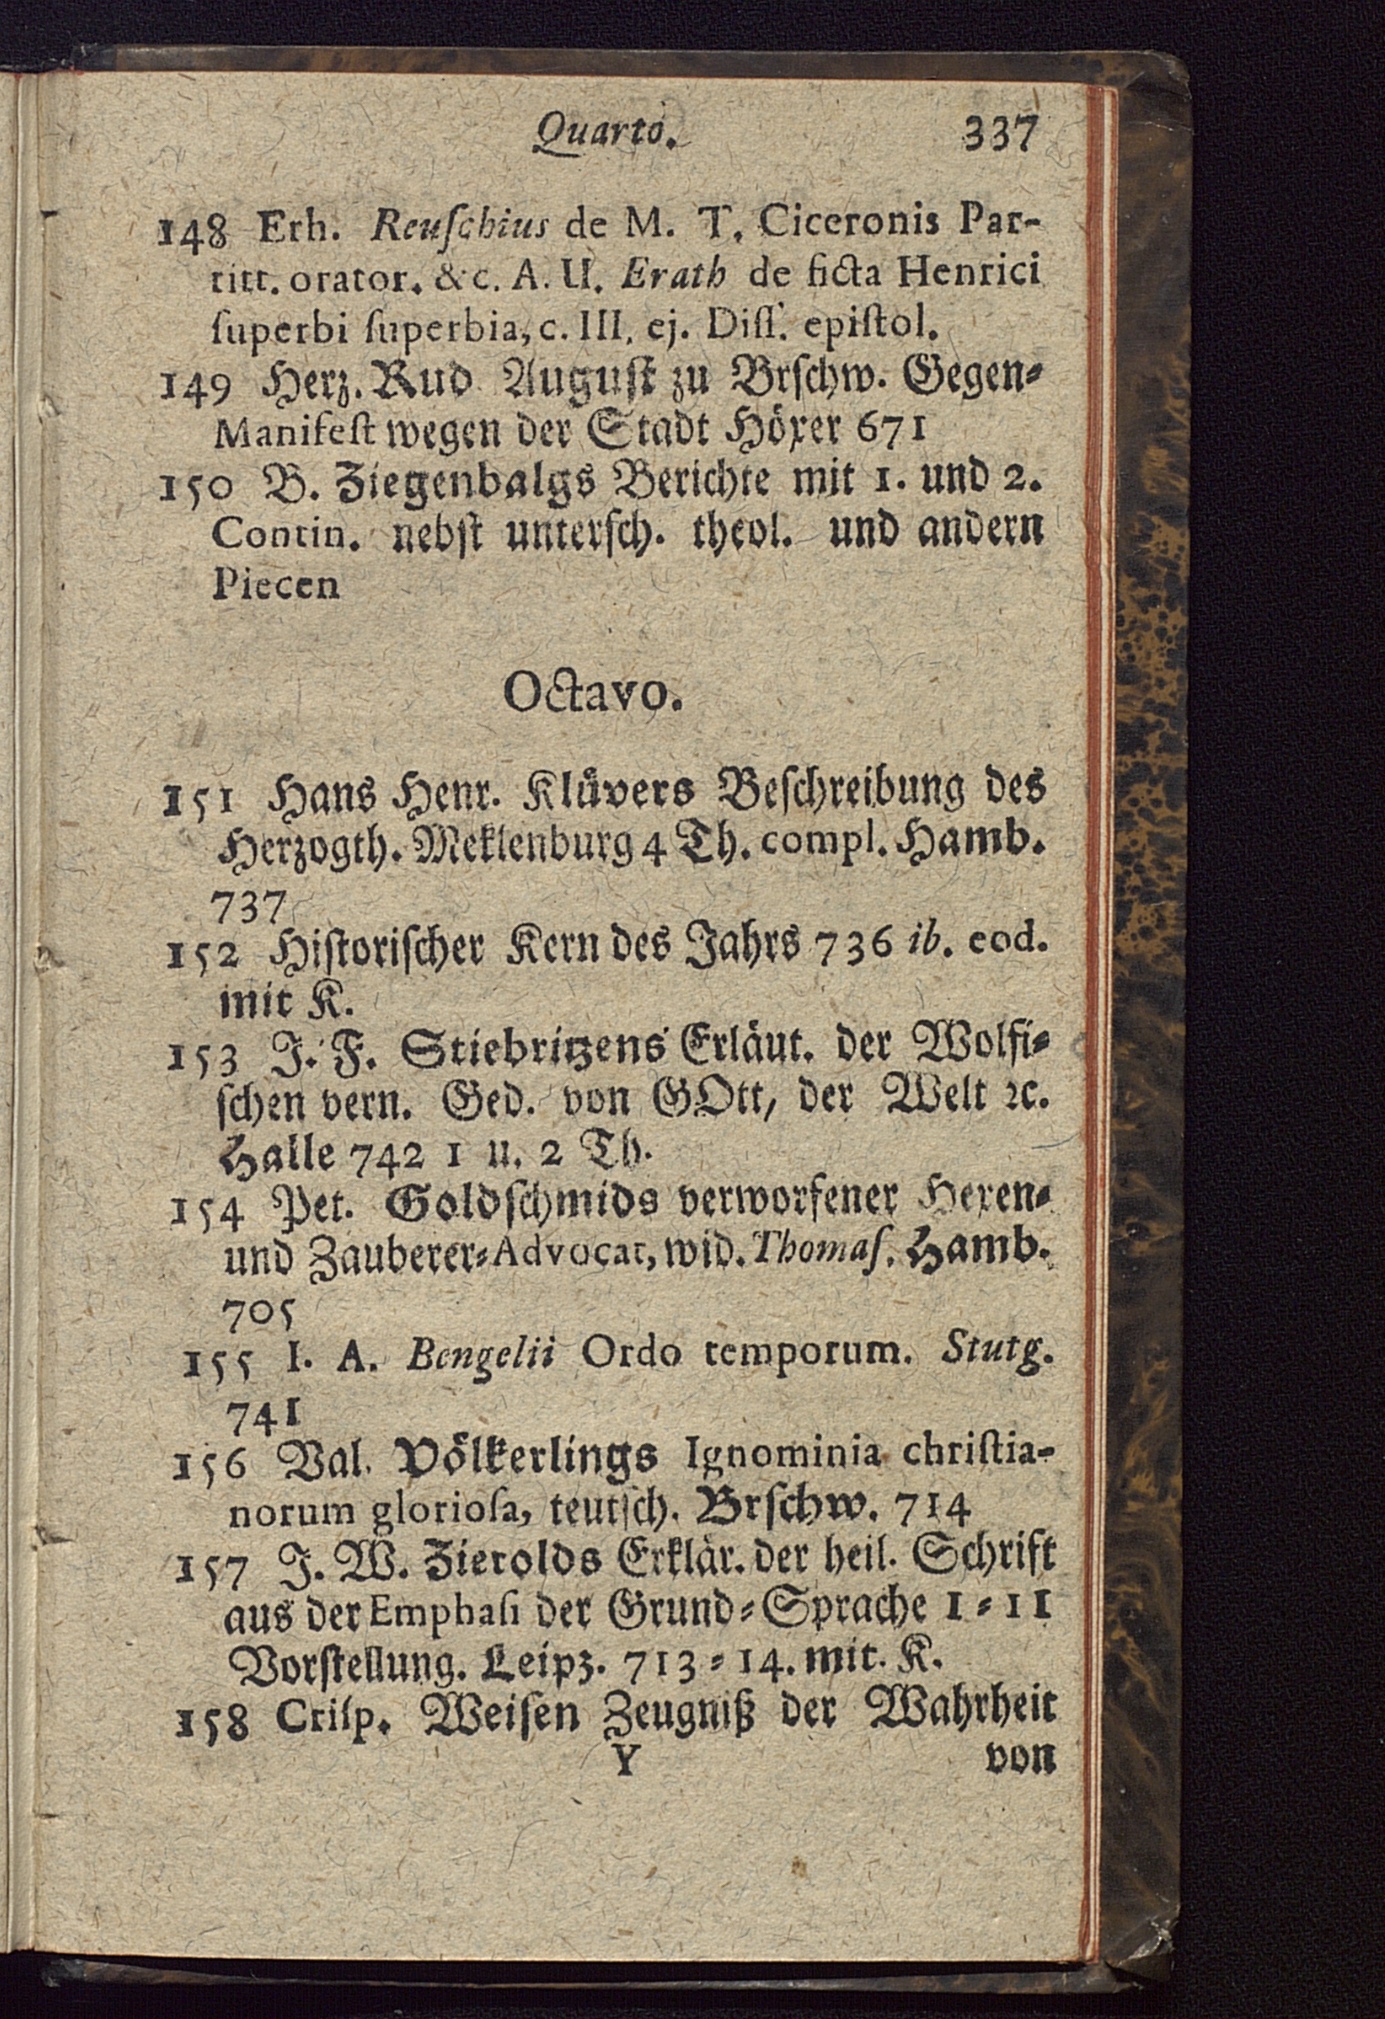 Quarto. 337
148 Erh. Reuſchius de M. T. Ciceronis Par-
titt. orator. &c. A. U. Erath de ficta Henrici
ſuperbi ſuperbia, c. III. ej. Diſſ. epiſtol.
149 Herz. Rud August zu Brſchw. Gegen⸗
Manifeſt wegen der Stadt Höxer 671
150 B. Ziegenbalgs Berichte mit 1. und 2.
Contin. nebſt unterſch. theol. und andern
Piecen
Octavo.
151 Hans Henr. Klüvers Beſchreibung des
Herzogth. Meklenburg 4 Th. compl. Hamb.
737
152 Hiſtoriſcher Kern des Jahrs 736 ib. eod.
mit K.
153 J. F. Stiebritzens Erläut. der Wolfi⸗
ſchen vern. Ged. von GOtt, der Welt ꝛc.
Halle 742 1 u. 2 Th.
154 Pet. Goldſchmids verworfener Hexen⸗
und Zauberer⸗Advocat, wid. Thomaſ. Hamb.
705
155 I. A. Bengelii Ordo temporum. Stutg.
741
156 Val. Völkerlings Ignominia chriſtia-
norum glorioſa, teutſch. Brſchw. 714
157 J. W. Zierolds Erklär. der heil. Schrift
aus der Emphaſi der Grund⸗Sprache 1⸗11
Vorſtellung. Leipz. 713⸗14. mit. K.
158 Criſp. Weiſen Zeugniß der Wahrheit
Y von